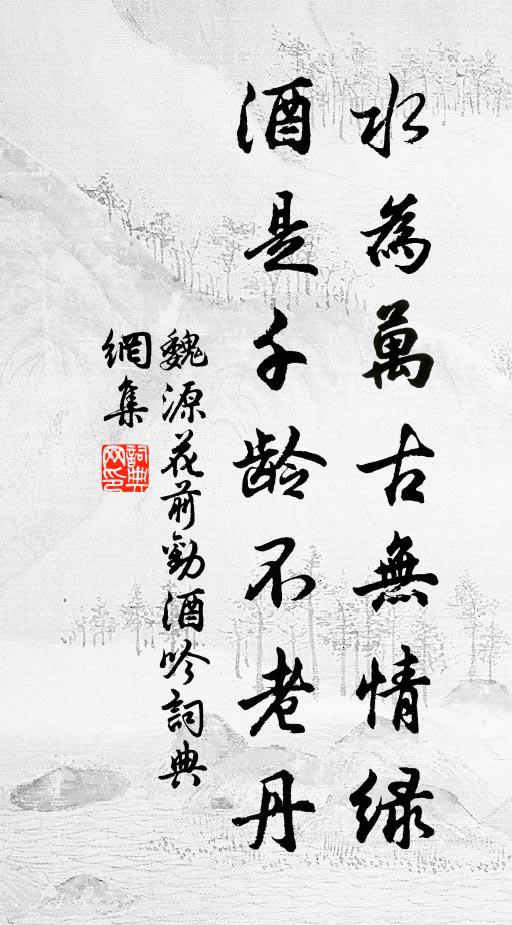 水為萬古無情緑
酒是千齡不老丹
魏源花前勸酒吟詞典
網集
詞典
网印